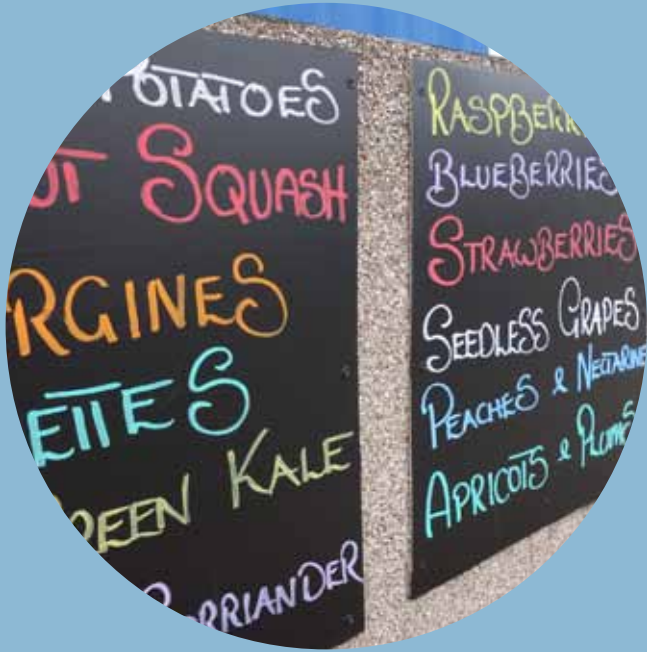 POTATOES
UT SQUASH
RGINES
ETTES
REEN KALE
CORRIANDER
RASPBERR
BLUEBERRIES
STRAWBERRIES
SEEDLESS GRAPES
PEACHES & NECTARINE
APRICOTS & PLUMS